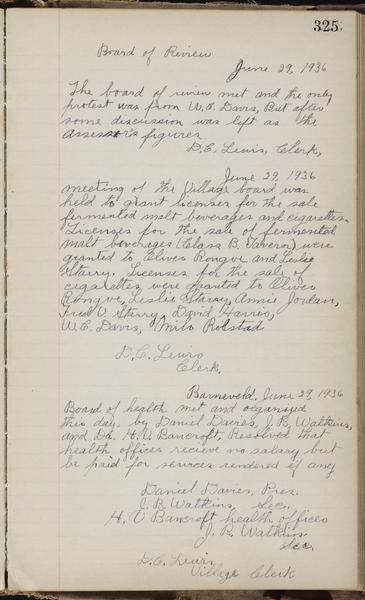 325
Board of Review
June 29, 1936
The board of review met and the only
protest was from W.E. Davis, But after
some discussion was left as the
Assessor's figures.
D.E. Lewis, Clerk,
June 29, 1936
meeting of the Village board was
held to grant licenses for the sale
fermented malt beverages and cigarettes.
Licenses for the sale of fermented
malt beverages (Class B. Tavern) were
granted to Oliver Rongve and Leslie
Starry. Licenses for the sale of
cigarettes were granted to Oliver
Rongve, Leslie Starry, Annie Jordan,
Fred V. Starry, David Harris,
W.E. Davis, Milo Rolstad
D.E. Lewis
Clerk.
Barneveld, June 29, 1936
Board of health met and organized
this day. by Daniel Davies, J.R. Watkins,
and Dr. H.V. Bancroft, Resolved that
health officer recieve no salary but
be paid for services rendered if any
Daniel Davies, Pres.
J.R. Watkins Sec.
H.V Bancroft health officer
J.R. Watkins
Sec.
D.E. Lewis
Village Clerk